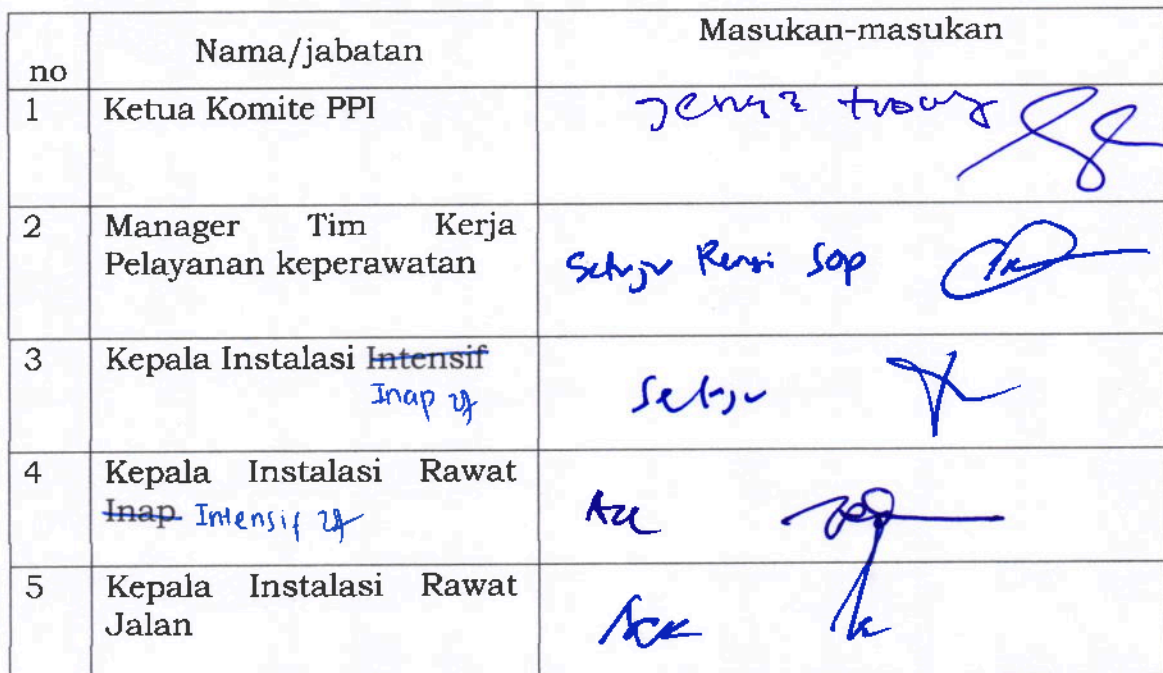 no Nama/jabatan Masukan-masukan
1 Ketua Komite PPI
2 Manager Tim Kerja
Pelayanan keperawatan
Setuju Revisi SOP
3 Kepala Instalasi Intensif
Inap
Setuju
4 Kepala Instalasi Rawat
Inap Intensif
Acc
5 Kepala Instalasi Rawat
Jalan
Acc